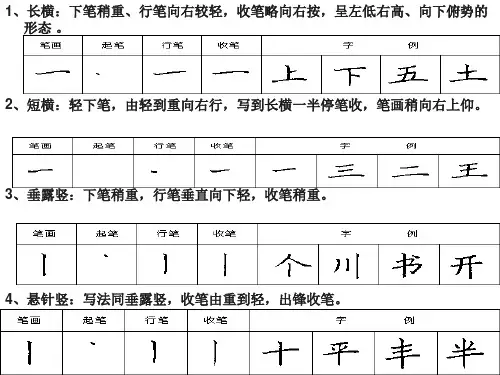 1、长横：下笔稍重、行笔向右较轻，收笔略向右按，呈左低右高、向下俯势的
形态 。
笔画 起笔 行笔 收笔 字 例
一 丶 一 一 上 下 五 土
2、短横：轻下笔，由轻到重向右行，写到长横一半停笔收，笔画稍向右上仰。
笔画 起笔 行笔 收笔 字 例
一 - 一 一 三 二 王
3、垂露竖：下笔稍重，行笔垂直向下轻，收笔稍重。
笔画 起笔 行笔 收笔 字 例
丨 丶 丨 丨 个 川 书 开
4、悬针竖：写法同垂露竖，收笔由重到轻，出锋收笔。
笔画 起笔 行笔 收笔 字 例
丨 丶 丨 丨 十 平 丰 半